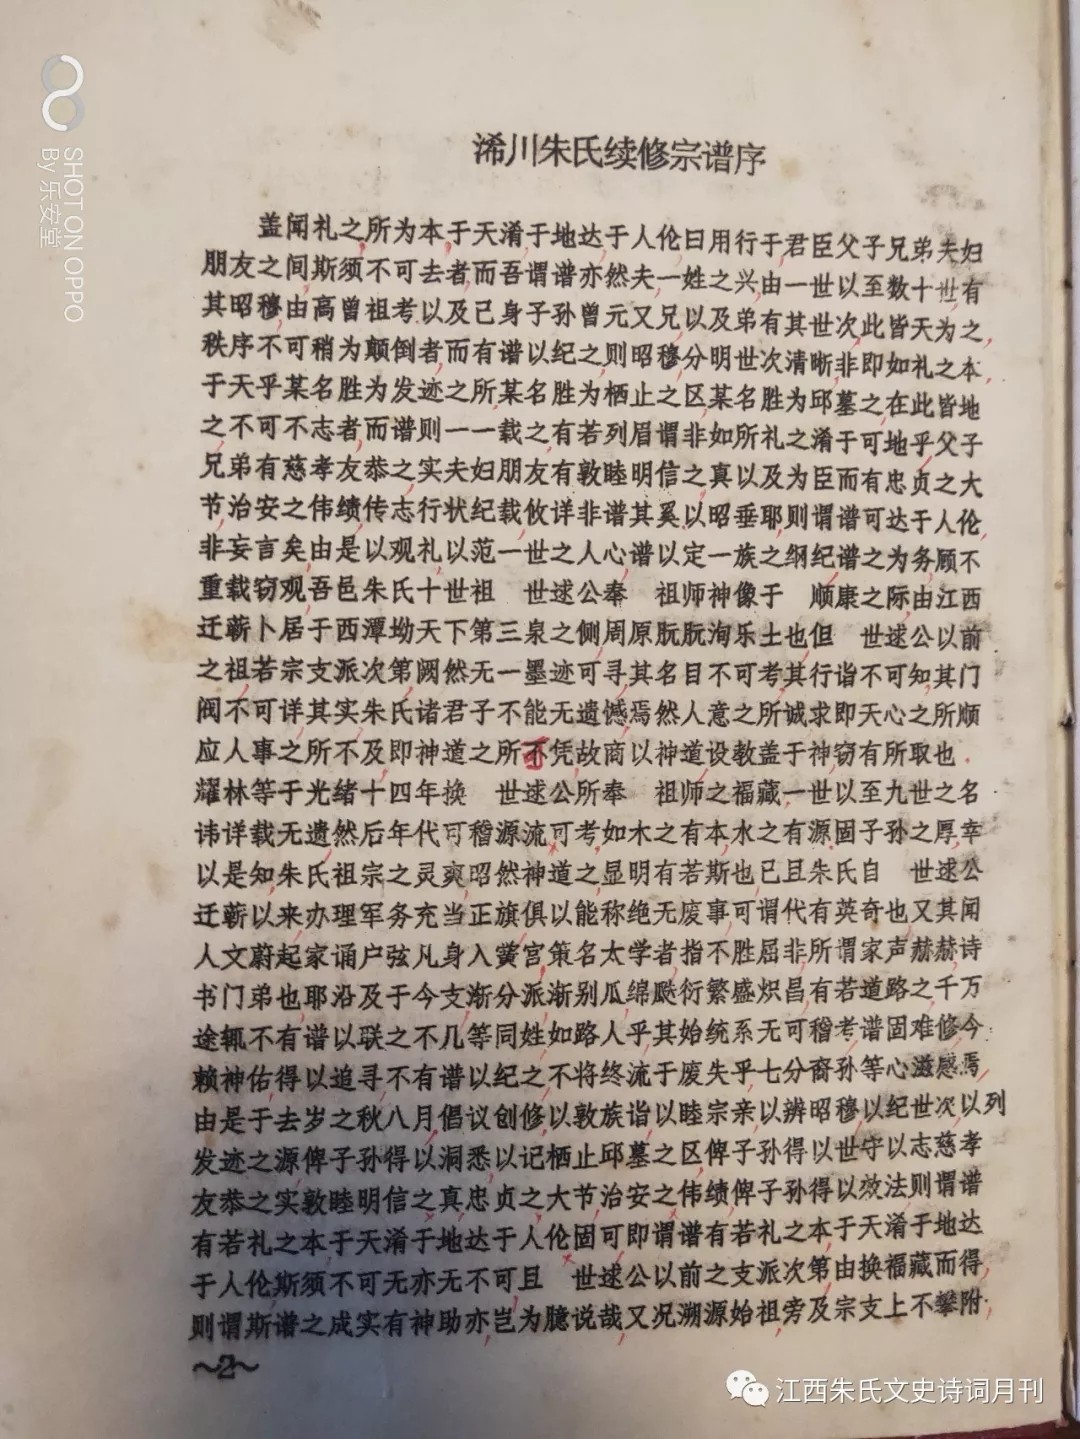 SHOT ON OPPO
By 乐安堂
浠川朱氏续修宗谱序
盖闻礼之所为本于天淆于地达于人伦日用行于君臣父子兄弟夫妇
朋友之间斯须不可去者而吾谓谱亦然夫一姓之兴由一世以至数十世有
其昭穆由高曾祖考以及己身子孙曾元又兄以及弟有其世次此皆天为之
秩序不可稍为颠倒者而有谱以纪之则昭穆分明世次清晰非即如礼之本
于天乎某名胜为发迹之所某名胜为栖止之区某名胜为邱墓之在此皆地
之不可不志者而谱则一一载之有若列眉谓非如所礼之淆于可地乎父子
兄弟有慈孝友恭之实夫妇朋友有敦睦明信之真以及为臣而有忠贞之大
节治安之伟绩传志行状纪载攸详非谱其奚以昭垂耶则谓谱可达于人伦
非妄言矣由是以观礼以范一世之人心谱以定一族之纲纪谱之为务顾不
重载窃观吾邑朱氏十世祖 世逑公奉 祖师神像于 顺康之际由江西
迁蕲卜居于西潭坳天下第三泉之侧周原朊朊洵乐土也但 世逑公以前
之祖若宗支派次第阙然无一墨迹可寻其名目不可考其行谐不可知其门
阀不可详其实朱氏诸君子不能无遗憾焉然人意之所诚求即天心之所顺
应人事之所不及即神道之所不凭故商以神道设教盖于神窃有所取也
耀林等于光绪十四年换 世逑公所奉 祖师之福藏一世以至九世之名
讳详载无遗然后年代可稽源流可考如木之有本水之有源固子孙之厚幸
以是知朱氏祖宗之灵爽昭然神道之显明有若斯也已且朱氏自 世逑公
迁蕲以来办理军务充当正旗俱以能称绝无废事可谓代有英奇也又其闻
人文蔚起家诵户弦凡身入黉宫策名太学者指不胜屈非所谓家声赫赫诗
书门弟也耶沿及于今支渐分派渐别瓜绵瓞衍繁盛炽昌有若道路之千万
途辄不有谱以联之不几等同姓如路人乎其始统系无可稽考谱固难修今
赖神佑得以追寻不有谱以纪之不将终流于废失乎七分裔孙等心滋感焉
由是于去岁之秋八月倡议创修以敦族谐以睦宗亲以辨昭穆以纪世次以列
发迹之源俾子孙得以洞悉以记栖止邱墓之区俾子孙得以世守以志慈孝
友恭之实敦睦明信之真忠贞之大节治安之伟绩俾子孙得以效法则谓谱
有若礼之本于天淆于地达于人伦固可即谓谱有若礼之本于天淆于地达
于人伦斯须不可无亦无不可且 世逑公以前之支派次第由换福藏而得
则谓斯谱之成实有神助亦岂为臆说哉又况溯源始祖旁及宗支上不攀附
~2~
江西朱氏文史诗词月刊